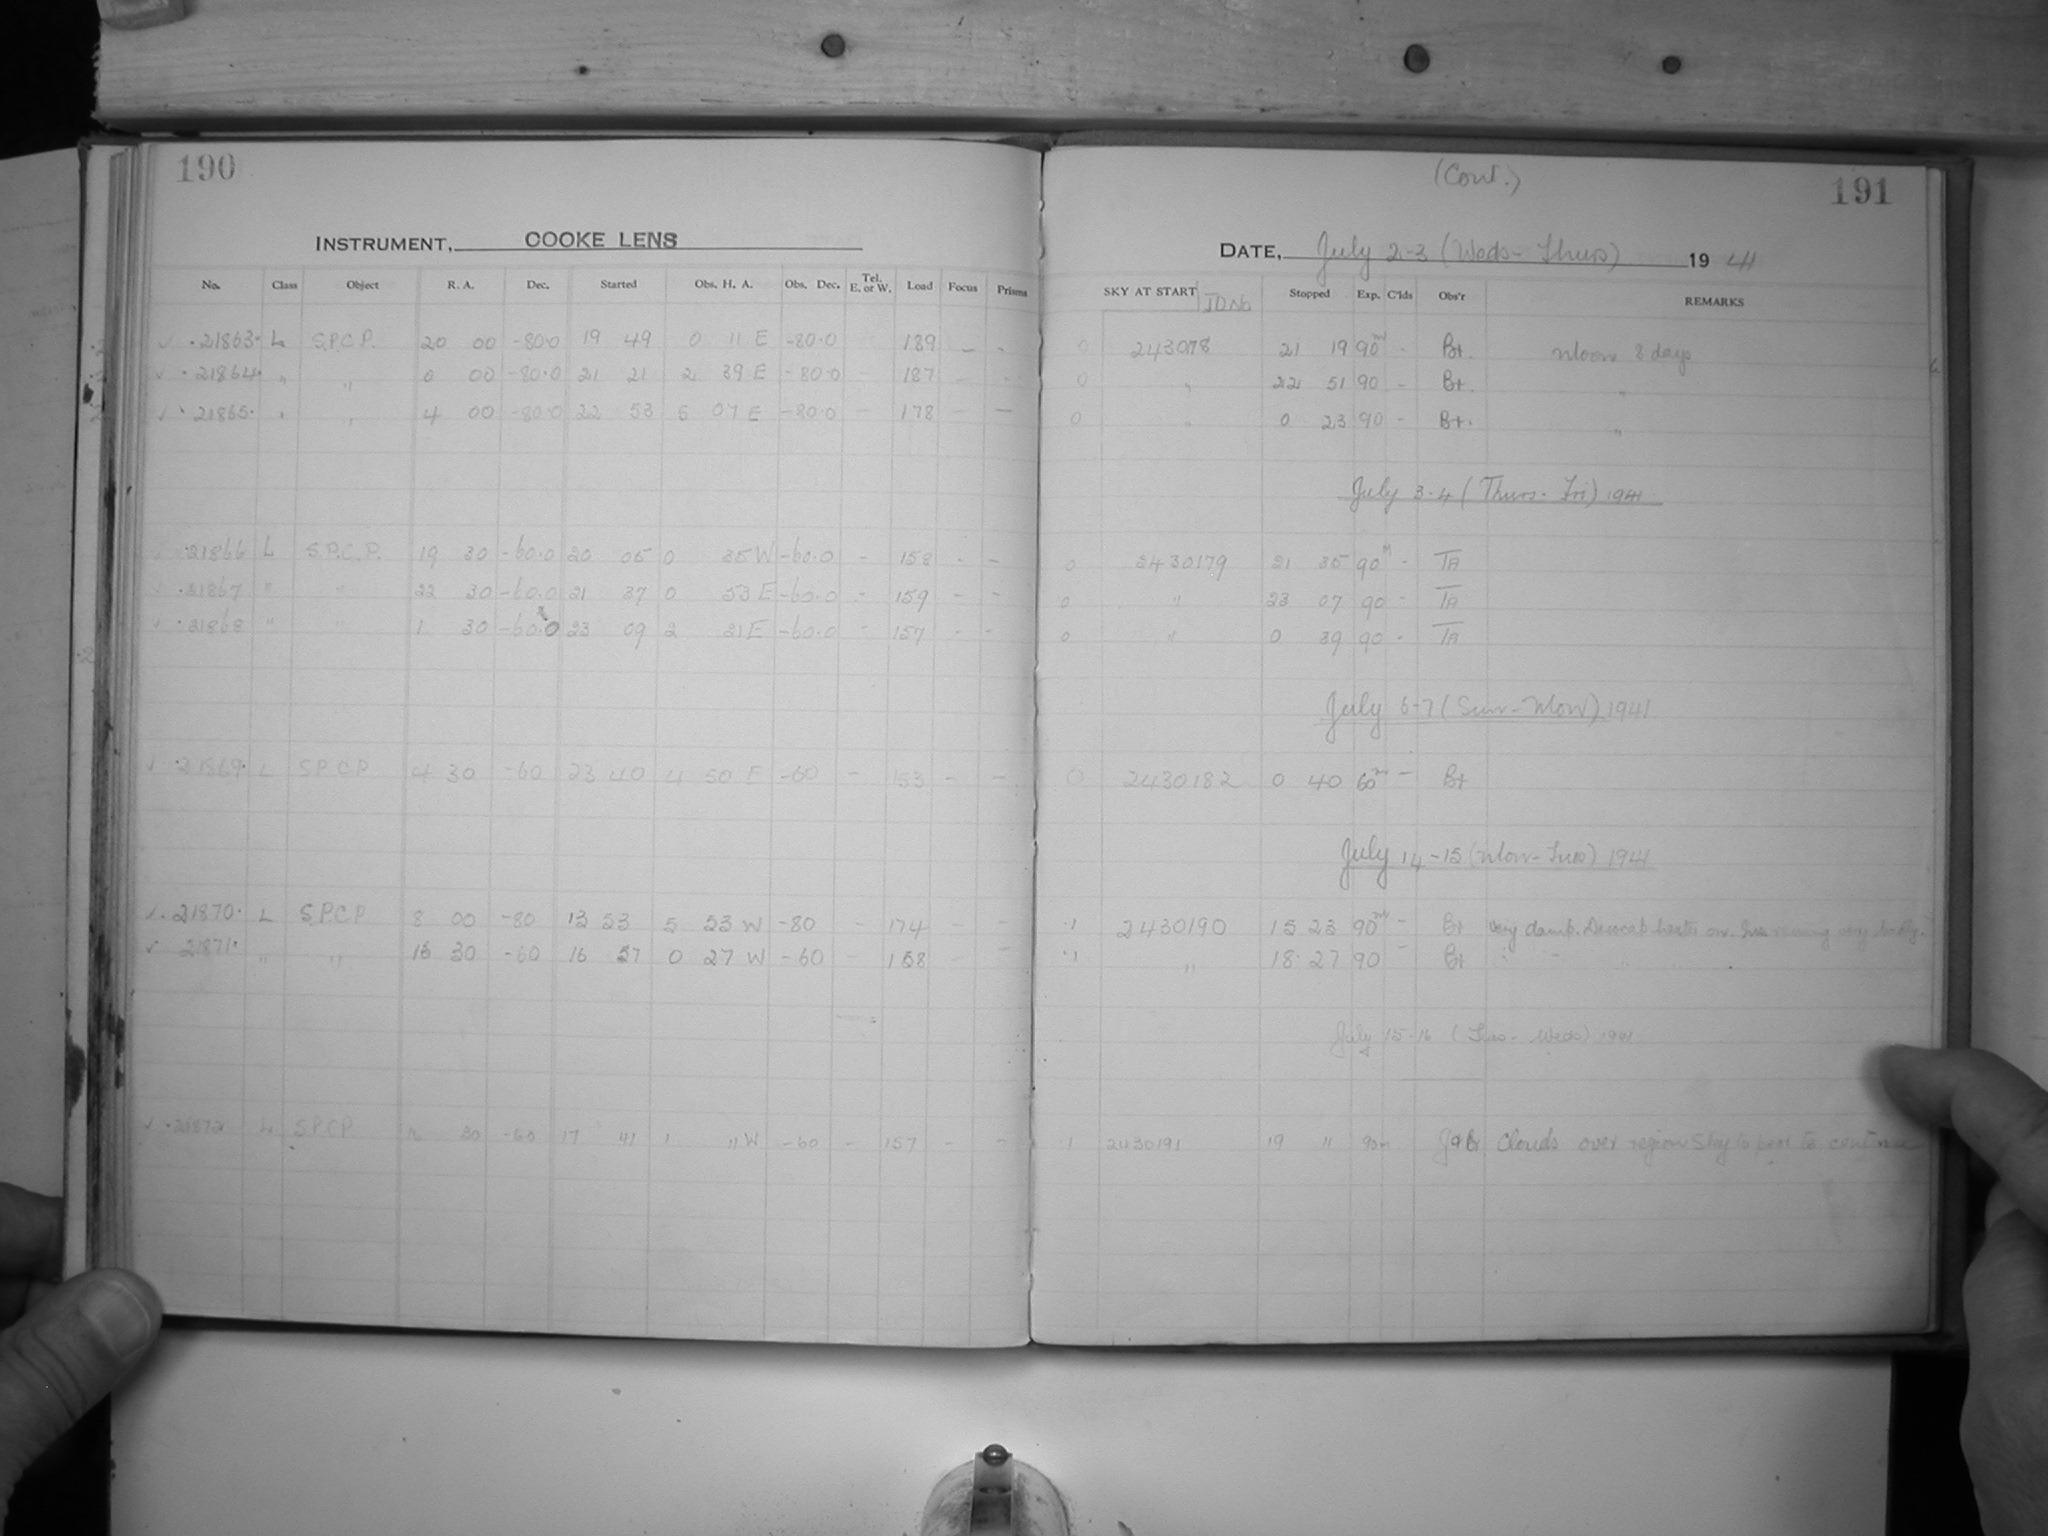 190
INSTRUMENT, COOKE LENS
No. Class Object R. A. Dec. Started Obs. H. A. Obs. Dec. Tel. E. or W. Load Focus Prisms
21863 L S.P.C.P. 20 00 -80.0 19 49 0 11 E -80.0 189 - -
21864 " " 0 00 -80.0 21 21 2 39 E -80.0 - 187 - -
21865 " " 4 00 -80.0 22 53 5 07 E -80.0 - 178 - -
21866 L S.P.C.P. 19 30 -60.0 20 05 0 35 W -60.0 - 158 - -
21867 " " 22 30 -60.0 21 37 0 53 E -60.0 - 159 - -
21868 " " 1 30 -60.0 23 09 2 21 E -60.0 - 157 - -
21869 L S.P.C.P. 4 30 -60 23 40 4 50 E -60 - 153 - -
21870 L S.P.C.P. 8 00 -80 13 53 5 53 W -80 - 174 - -
21871 " " 16 30 -60 16 57 0 27 W -60 - 158 - -
21872 L S.P.C.P. 30 -60 17 41 1 11 W -60 - 157 - -
(Cont.)
191
DATE, July 2-3 (Weds-Thurs) 1941
SKY AT START JD No Stopped Exp. C'lds Obs'r REMARKS
0 243078 21 19 90m - Bt. Moon 8 days
0 " 22 51 90 - Bt. "
0 " 0 23 90 - Bt. "
July 3-4 (Thurs-Fri) 1941
0 2430179 21 35 90m - TA
0 " 23 07 90 - TA
0 " 0 39 90 - TA
July 6-7 (Sun-Mon) 1941
0 2430182 0 40 60m - Bt
July 14-15 (Mon-Tues) 1941
.1 2430190 15 23 90m - Bt Very damp. Dewcap heater on. running very
.1 " 18 27 90 - Bt " " " "
July 15-16 (Tues-Weds) 1941
.1 2430191 19 11 90m Clouds over region Sky to poor to continue